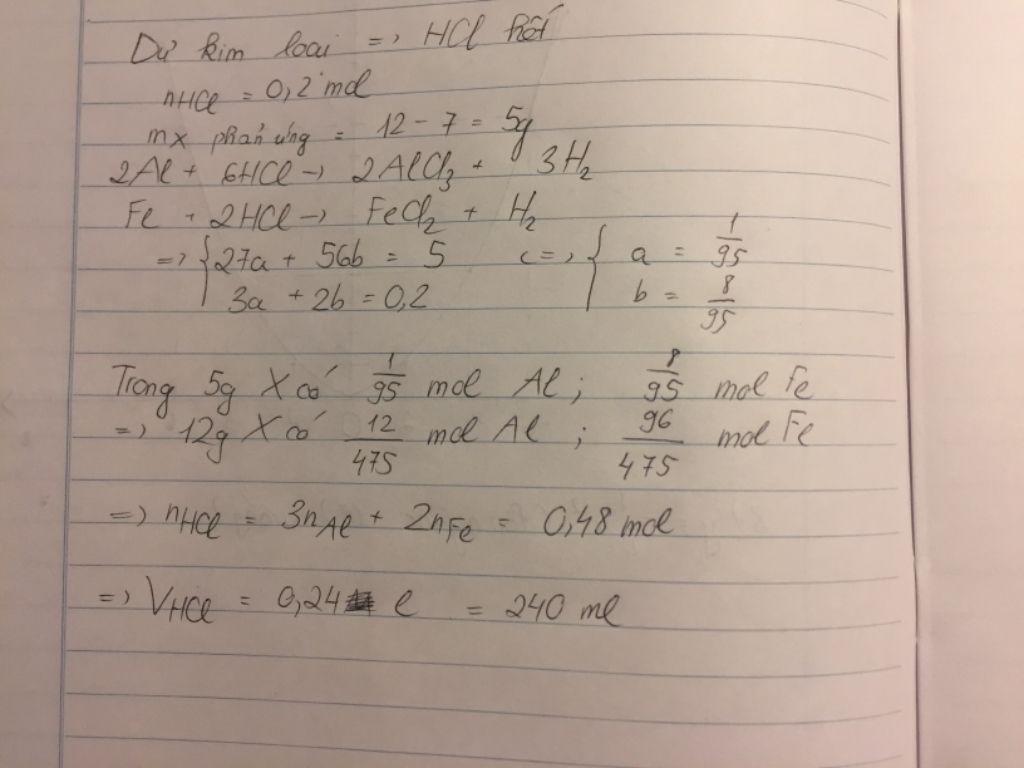 Dư kim loại => HCl hết
nHCl = 0,2 mol
mX phản ứng = 12 - 7 = 5g
2Al + 6HCl -> 2AlCl₃ + 3H₂
Fe + 2HCl -> FeCl₂ + H₂
=> { 27a + 56b = 5 <=> { a = 1/95
3a + 2b = 0,2 b = 8/95
Trong 5g X có 1/95 mol Al ; 8/95 mol Fe
=> 12g X có 12/475 mol Al ; 96/475 mol Fe
=> nHCl = 3nAl + 2nFe = 0,48 mol
=> VHCl = 0,24 l = 240 ml